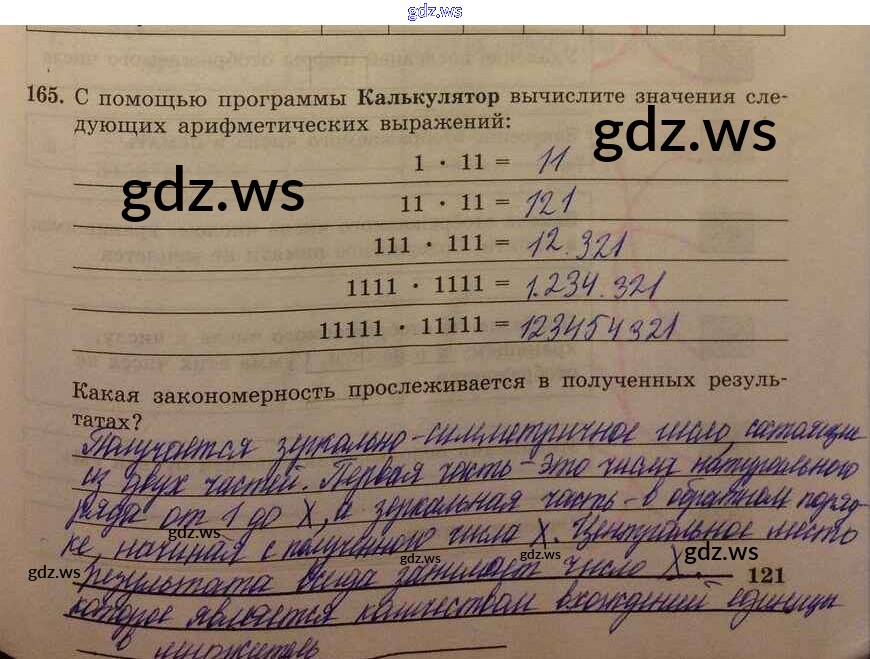 gdz.ws
165. С помощью программы Калькулятор вычислите значения сле-
дующих арифметических выражений:
gdz.ws
1 · 11 = 11
gdz.ws
11 · 11 = 121
111 · 111 = 12.321
1111 · 1111 = 1.234.321
11111 · 11111 = 123454321
Какая закономерность прослеживается в полученных резуль-
татах?
Получается зеркально-симметричное число, состоящие
из двух частей. Первая часть - это числа натурального
ряда от 1 до X, а зеркальная часть - в обратном поряд-
ке, начиная с полученного числа X. Центральное место
gdz.ws gdz.ws gdz.ws gdz.ws
результата всегда занимает число X.
gdz.ws 121
которое является количеством вхождений единицы
в множитель
gdz.ws